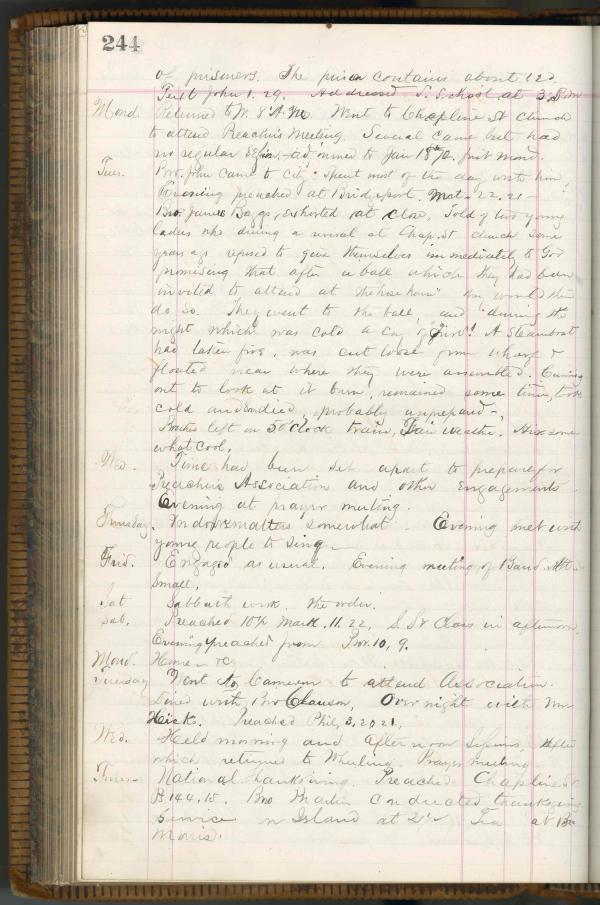 244
of prisoners. The prison contains about 120
Text John 1.29. Addressed S. School at 3 P.M
Mond. Returned to W. 8 A.M. Went to Chapline St Church
to attend Preachers Meeting. Several came but had
no regular adjourned to Jan first Mond.
Tues. Bro. John came to city. Spent most of the day with him,
Evening preached at Bridgeport. Mat. 22.21 -
Bro. James Baggs, exhorted at close, Told of two young
ladies who during a revival at Chap. St church some
years ago refused to give themselves immediately to God
promising that after a ball which they had been
invited to attend at the they would then
do so. They went to the ball, and during the
night which was cold a cry of fire! A Steamboat
had taken fire, was cut loose from wharf &
floated near where they were assembled. Coming
out to look at it burn, remained some time, took
cold and died, probably unprepared -,
left on 5 o'clock train, Fair weather.
what cool.
Wed. Time had been set apart to prepare for
Preachers Association and other Engagements -
Evening at prayer meeting.
Thursday. Indoor matters somewhat. Evening met with
young people to sing -
Frid. Engaged as usual. Evening meeting of Band.
small,
Sat Sabbath work. the order.
Sab. Preached 10½ Mark. 11.22, S. S. Class in afternoon,
Evening preached from Prov. 10, 9.
Mond. Home - &c
Tuesday Went to Cameron to attend Association.
Dined with Bro Clauson, Over night with Wm
Hicks. Preached Phil, 3.20 21
Wed. Held morning and afternoon Sessions, After
which returned to Wheeling. Prayer meeting
Thurs- National thanksgiving. Preached Chapline St
Ps 144.15. Bro Martin conducted thanksgiving
service on Island at Tea at Bro
Morris.